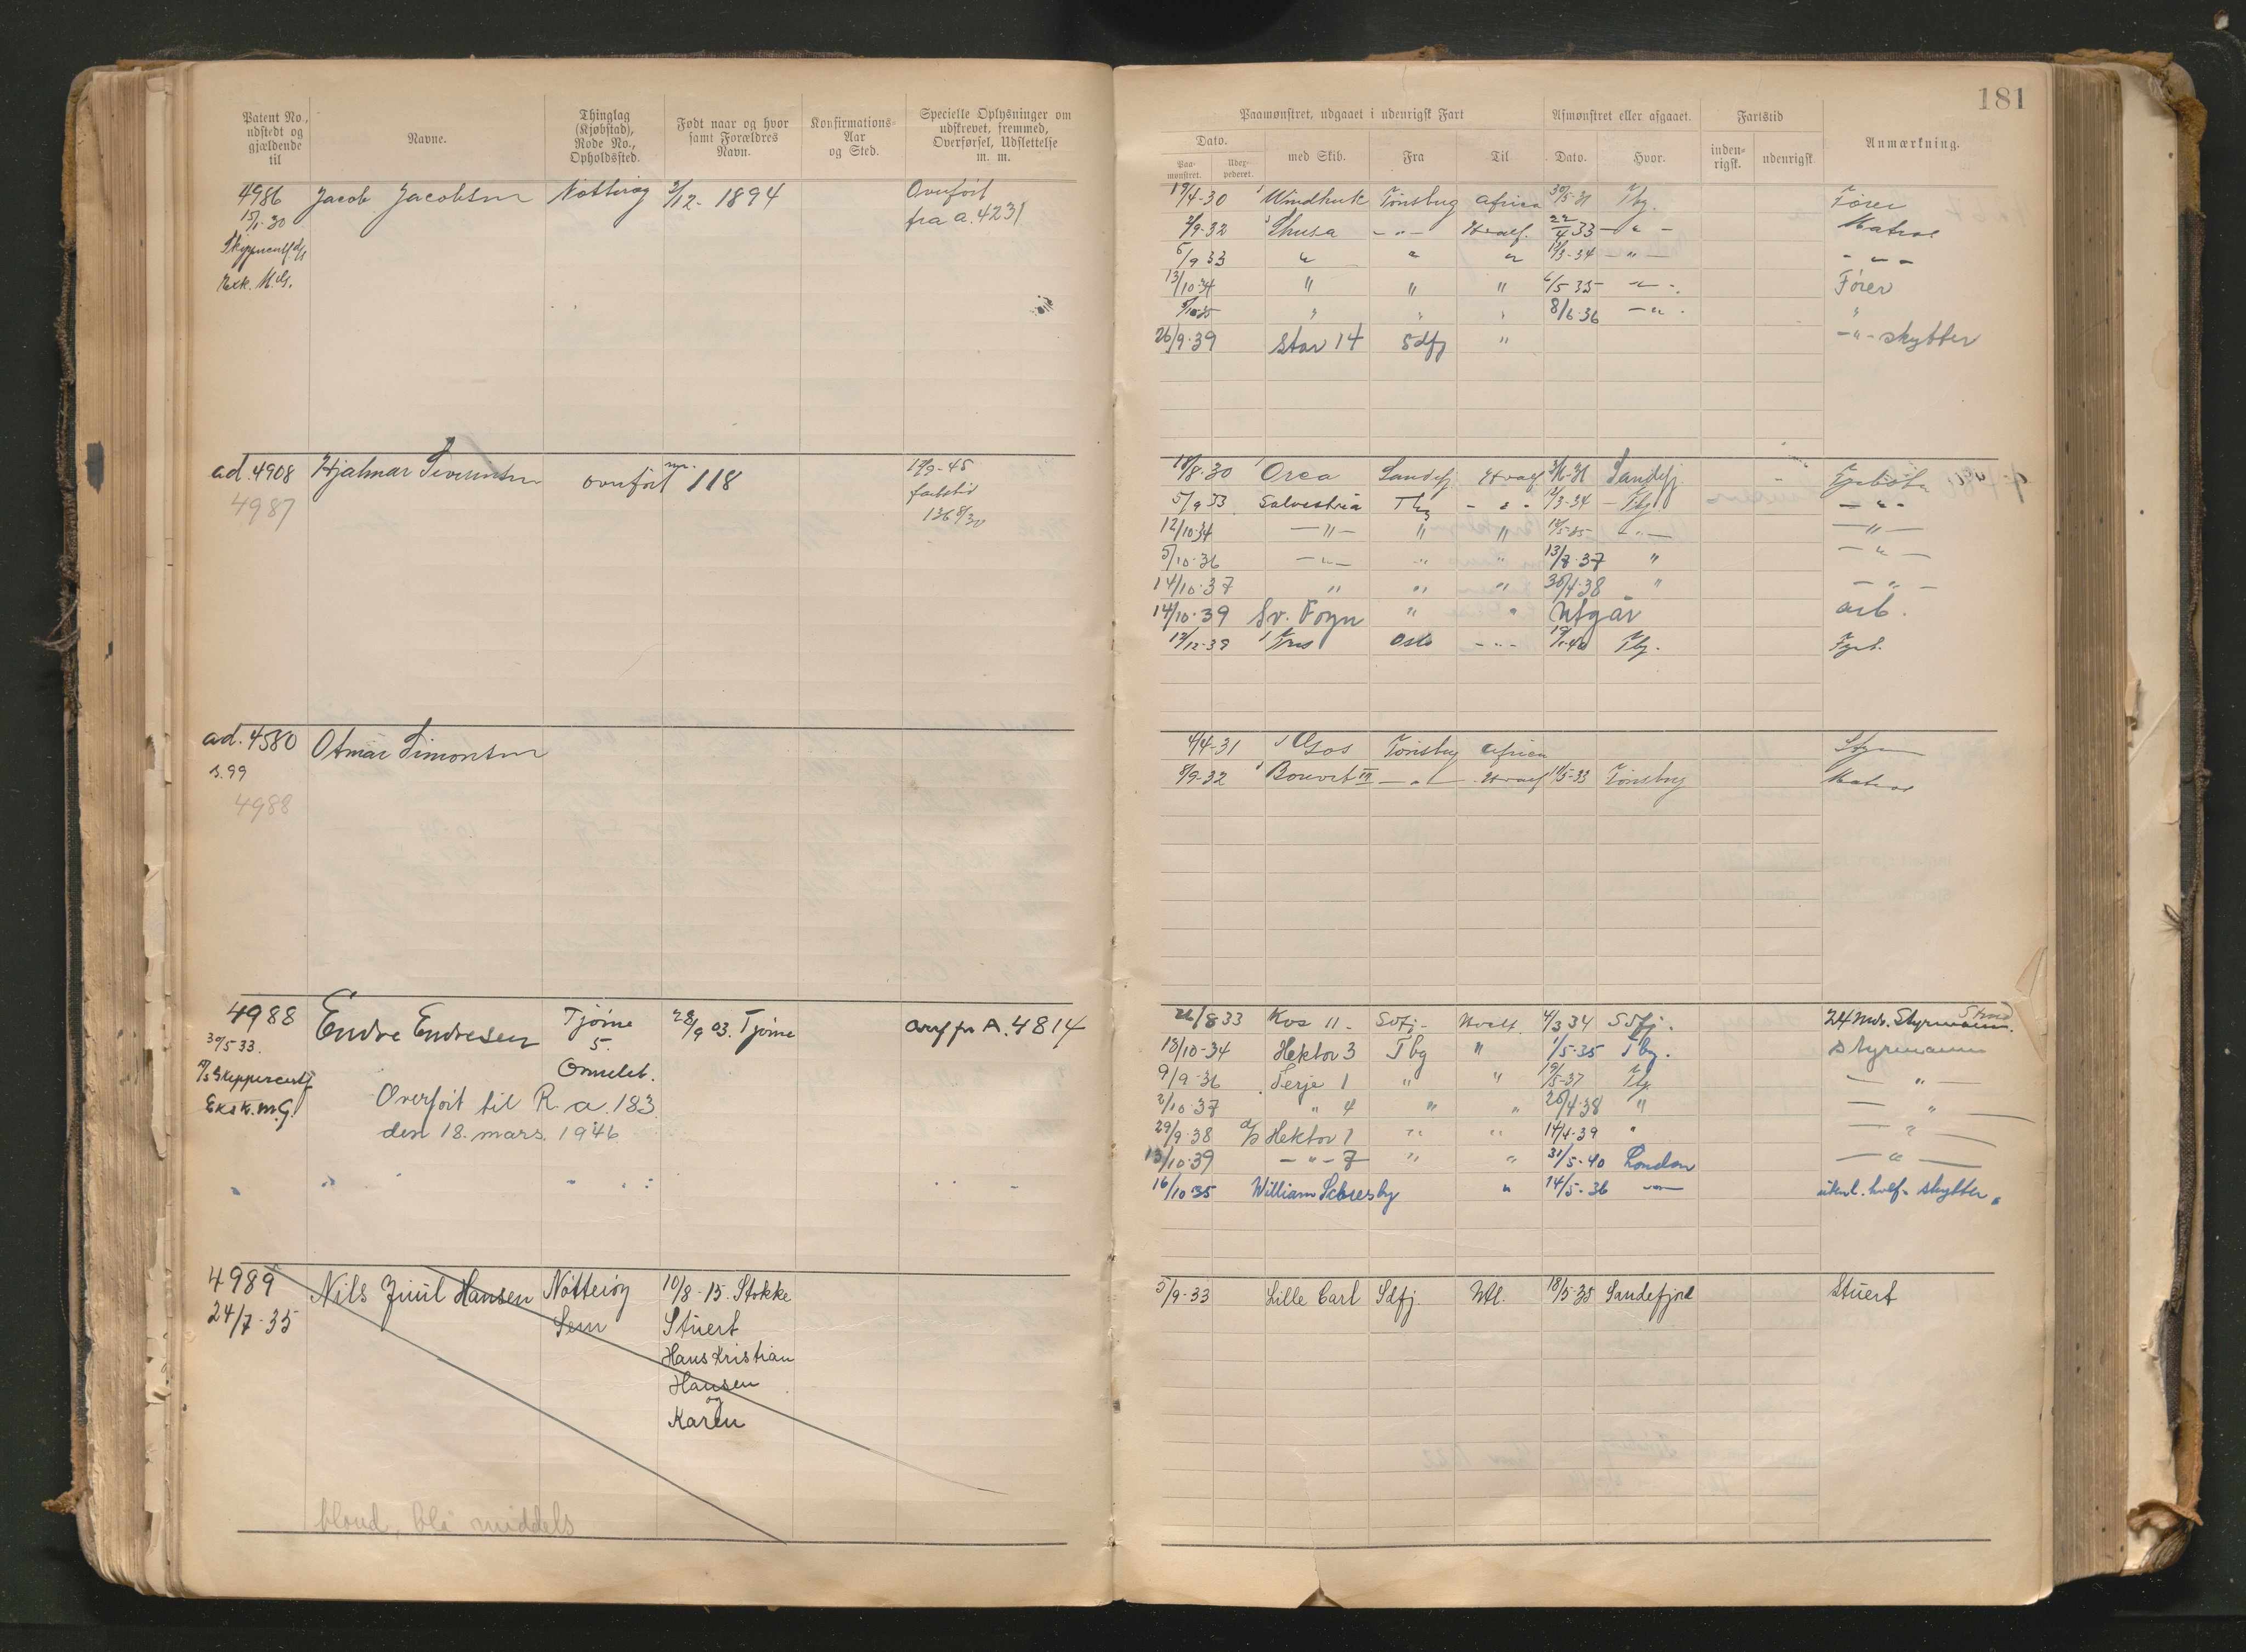 181
Patent No., udstedt og gjældende til
Navne.
Thinglag (Kjøbstad), Rode No., Opholdssted.
Født naar og hvor samt Forældres Navn.
Konfirmations-Aar og Sted.
Specielle Oplysninger om udskrevet, fremmed, Overførsel, Udslettelse m. m.
Paamønstret, udgaaet i udenrigsk Fart
Afmønstret eller afgaaet.
Fartstid
Anmærkning.
Dato.
med Skib.
Fra
Til
Dato.
Hvor.
inden-rigsk.
udenrigsk
Paa-mønstret.
4986 Jacob Jacobsen Nøtterøy 3/12-1894 Overført
15/1-30 fra a. 4231
19/4-30 Windhuk Tønsberg Africa 30/5-31 Tbg. Fører
2/9-32 Thusa -"- Hvalf. 22/4 33 -"- Matros
5/9 33 " " " 13/3-34 -"- -"-
13/10-34 " " " 6/5 35 -"- Fører
" " " 8/6-36 -"- "
26/9-39 Star 14 Sdfj " -"- skytter
ad. 4908 Hjalmar Sivertsen overført nr. 118 17/9-45
4987 fartstid
136 8/30
18/8-30 Orca Sandefj Hvalf Sandefj.
5/9 33 Salvestria Tbg -"- 12/3-34 - Tbg. -"-
12/10 34 -"- " " -"- -"-
5/10-36 -"- " " 13/8-37 " -"-
14/10-37 " " " 30/4-38 " -"-
14/10-39 Sv. Foyn " " Utgår arb.
12/12-39 Oslo -"- Tbg. Fyrb.
ad. 4580 Otmar Simonsen
s. 99
4988
4/4-31 Tønsberg African
8/9-32 Bouvet III -"- Hvalf 11/5-33 Tønsberg Matros
4988 Endre Endresen Tjøme 28/9 03. Tjøme Overf fr A. 4814
30/5 33. 5.
Skippercertf Ormelet.
Eks k. m.G.
Overført til R a. 183
den 18. mars. 1946
22/8 33 Kos 11- Sdfj- Hvalf. 4/3 34 Sdfj. 24 mdr. Styrmann.
18/10-34 Hektor 3 Tbg " 1/5-35 Tbg. styrmann
9/9-36 Terje 1 " " 19/5-37 Tbg -"-
2/10-37 " 4 " " 26/4-38 " -"-
29/9-38 Hektor 1 " " 14/4-39 " -"-
13/10-39 -"- 7 " " 31/5-40 London -"-
16/10 35 William Scoresby " 14/5-36 utenl. hvf- skytter.
4989 Nils Juul Hansen Nøtterøy 10/8-15. Stokke
24/7-35 Sem Stuert
Hans Kristian
Hansen
og
Karen
5/9-33 Lille Carl Sdfj. Hvl. 18/5-35 Sandefjord Stuert
blond, blå middels